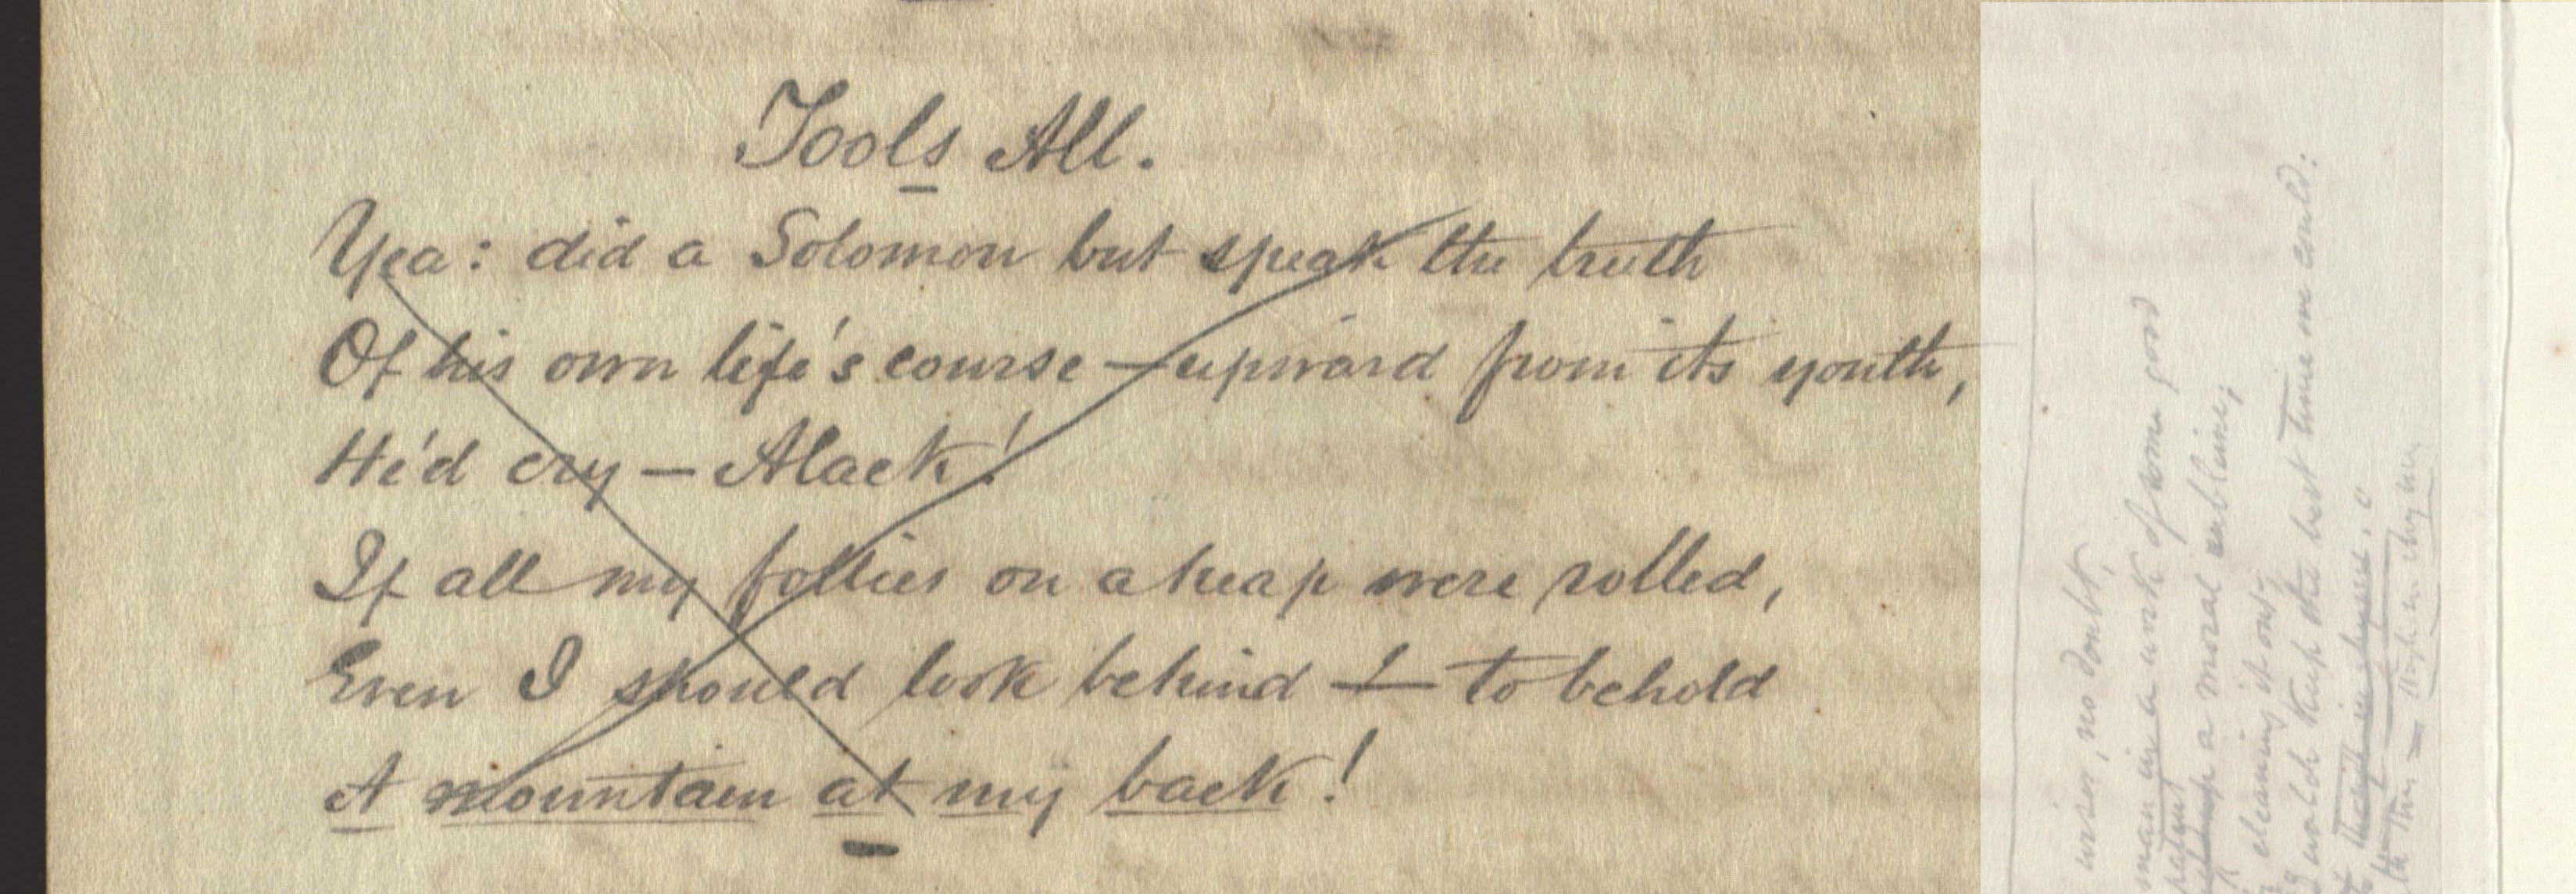 Fools All.
Yea: did a Solomon but speak the truth
Of his own life's course — upward from its youth,
He'd cry — Alack!
If all my follies on a heap were rolled,
Even I should look behind — to behold
A mountain at my back!
wiser, no doubt,
man in a work of some good
a moral sublime;
cleaning it out
watch keep the best time one could: